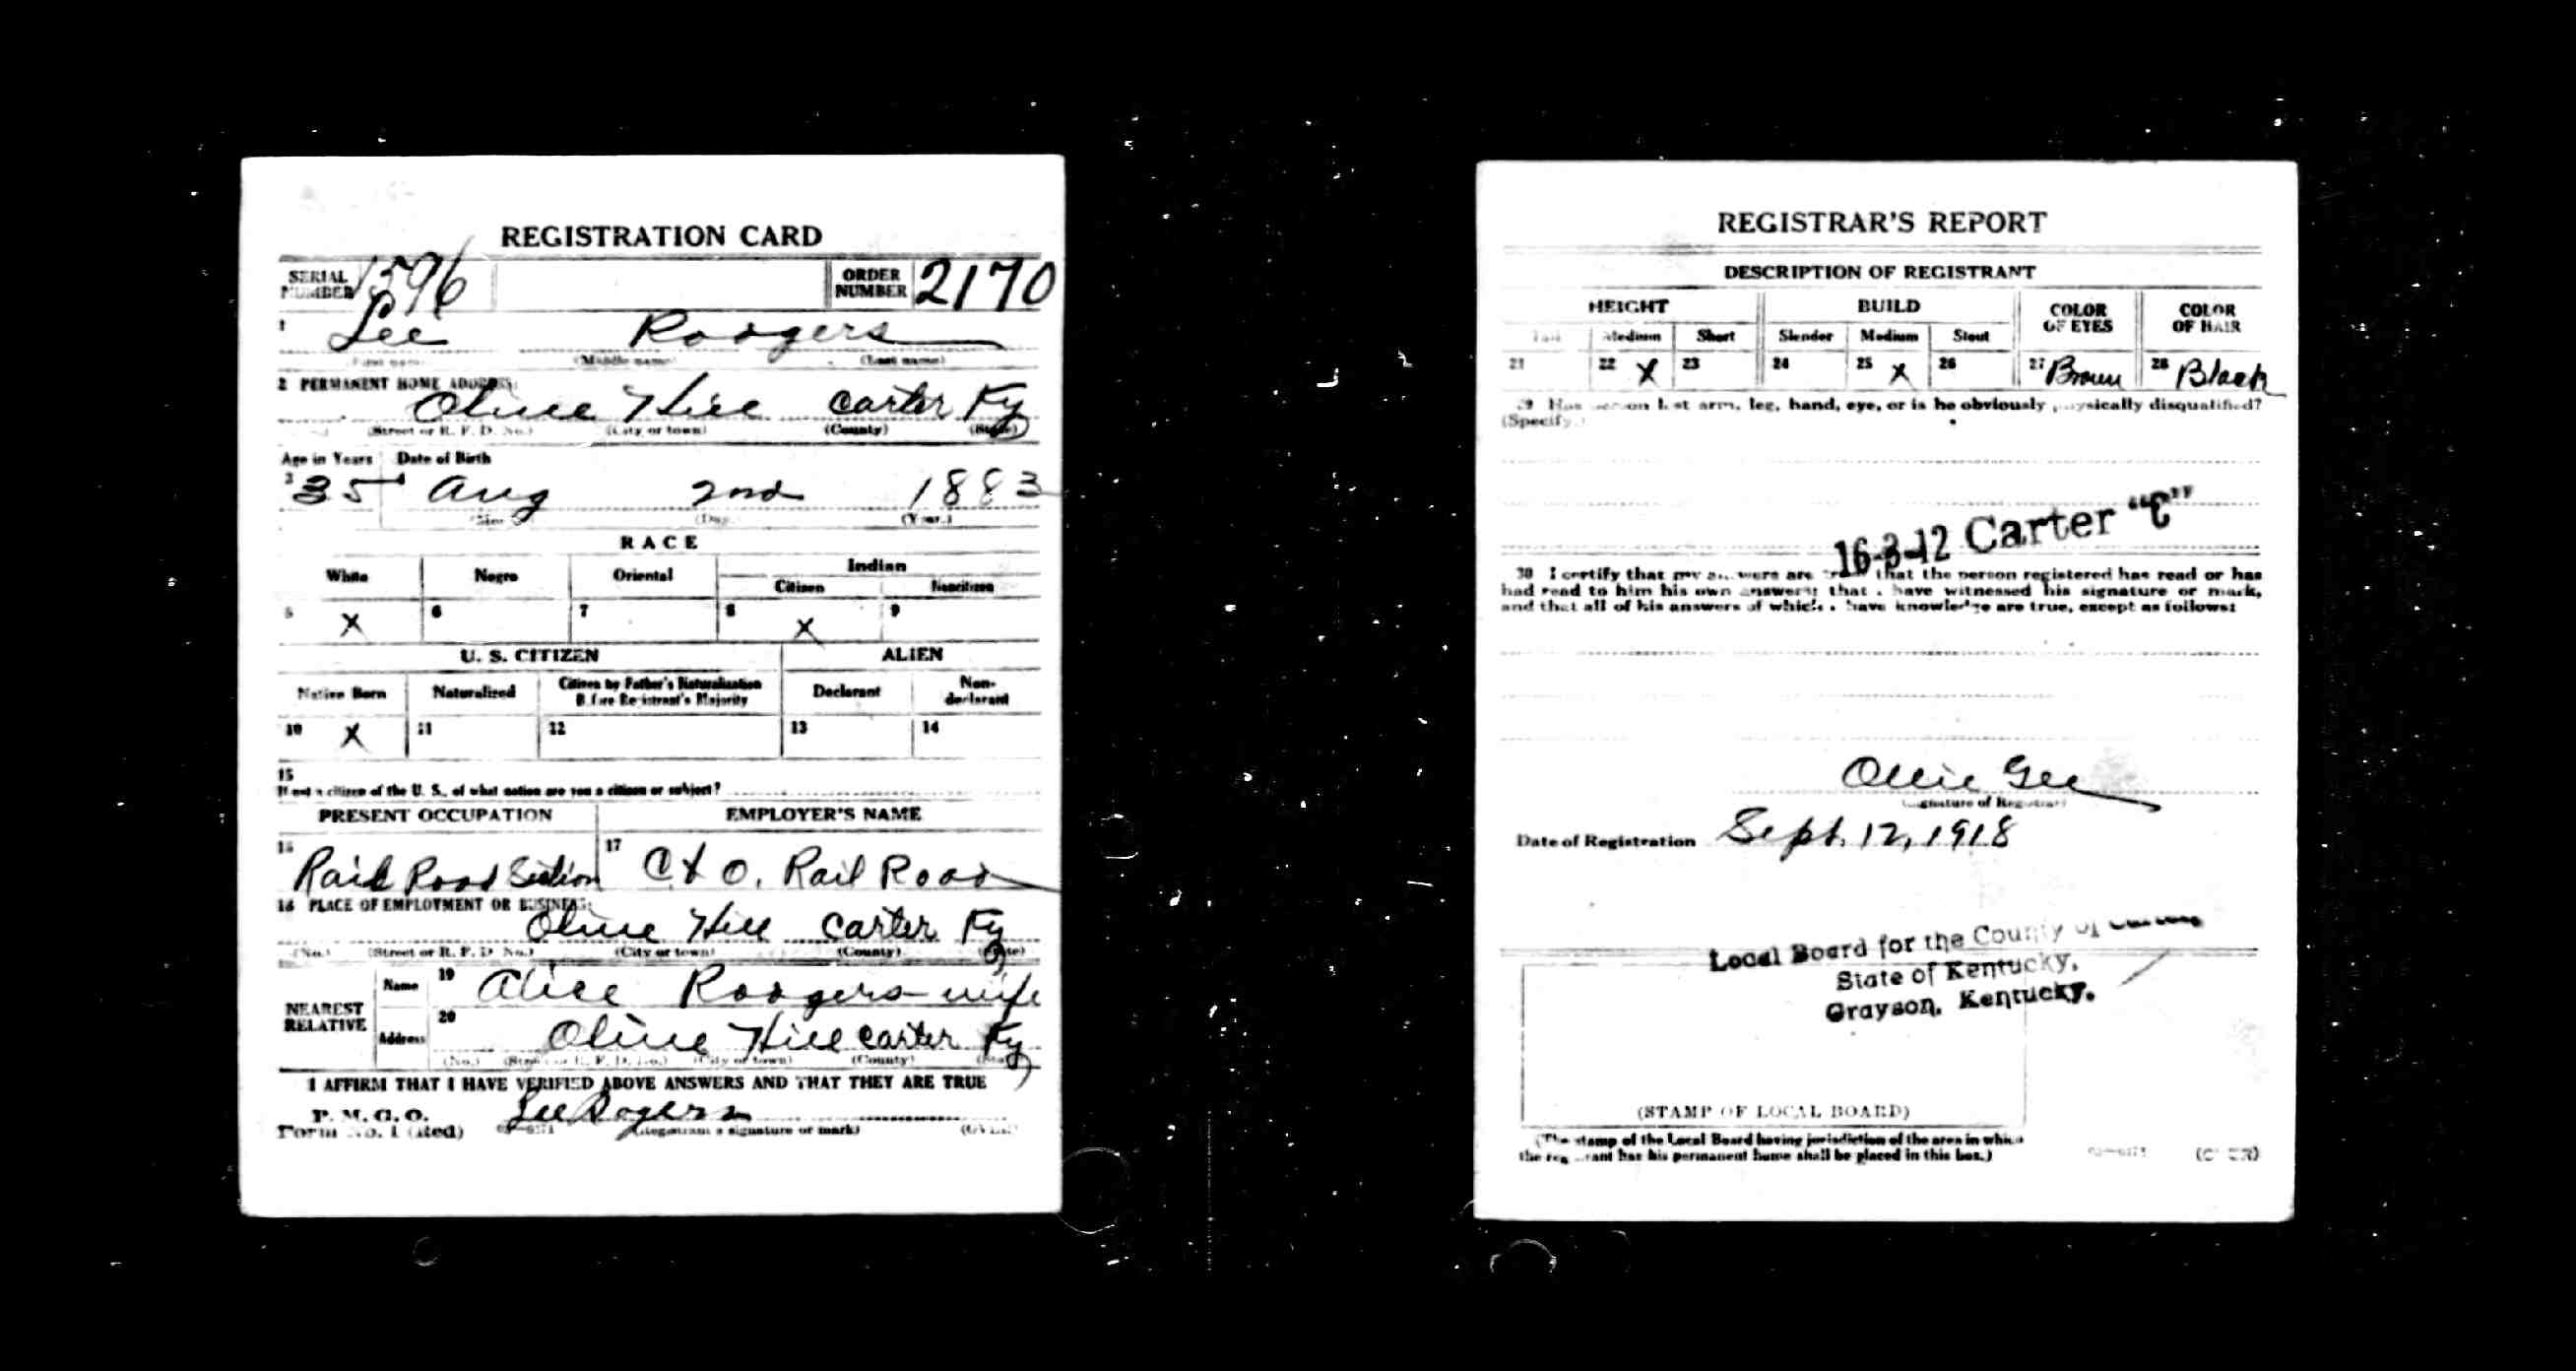 REGISTRATION CARD
SERIAL NUMBER 1596 ORDER NUMBER 2170
1 Lee Rodgers
(First name) (Middle name) (Last name)
2 PERMANENT HOME ADDRESS:
Olive Hill Carter Ky
(Street or R. F. D. No.) (City or town) (County) (State)
Age in Years Date of Birth
3 35 Aug 2nd 1883
(Day.) (Year.)
RACE
White Negro Oriental Indian
Citizen Noncitizen
5 X 6 7 8 X 9
U. S. CITIZEN ALIEN
Native Born Naturalized Citizen by Father's Naturalization Before Registrant's Majority Declarant Non-declarant
10 X 11 12 13 14
15
If not a citizen of the U. S., of what nation are you a citizen or subject?
PRESENT OCCUPATION EMPLOYER'S NAME
16 Rail Road Section 17 C & O. Rail Road
18 PLACE OF EMPLOYMENT OR BUSINESS:
Olive Hill Carter Ky
(No.) (Street or R. F. D. No.) (City or town) (County) (State)
NEAREST RELATIVE
Name 19 Alice Rodgers wife
Address 20 Olive Hill Carter Ky
(No.) (Street or R. F. D. No.) (City or town) (County) (State)
I AFFIRM THAT I HAVE VERIFIED ABOVE ANSWERS AND THAT THEY ARE TRUE
P. M. G. O.
Form No. 1 (Red) Lee Rogers
(Registrant's signature or mark) (OVER)
REGISTRAR'S REPORT
DESCRIPTION OF REGISTRANT
HEIGHT BUILD COLOR OF EYES COLOR OF HAIR
Tall Medium Short Slender Medium Stout
21 22 X 23 24 25 X 26 27 Brown 28 Black
29 Has person lost arm, leg, hand, eye, or is he obviously physically disqualified?
(Specify.)
16-3-12 Carter "C"
30 I certify that my answers are true that the person registered has read or has
had read to him his own answers; that I have witnessed his signature or mark,
and that all of his answers of which I have knowledge are true, except as follows:
Ollie Gee
(Signature of Registrar)
Date of Registration Sept. 12, 1918
Local Board for the County of Carter
State of Kentucky,
Grayson, Kentucky.
(STAMP OF LOCAL BOARD)
(The stamp of the Local Board having jurisdiction of the area in which
the registrant has his permanent home shall be placed in this box.)
(OVER)